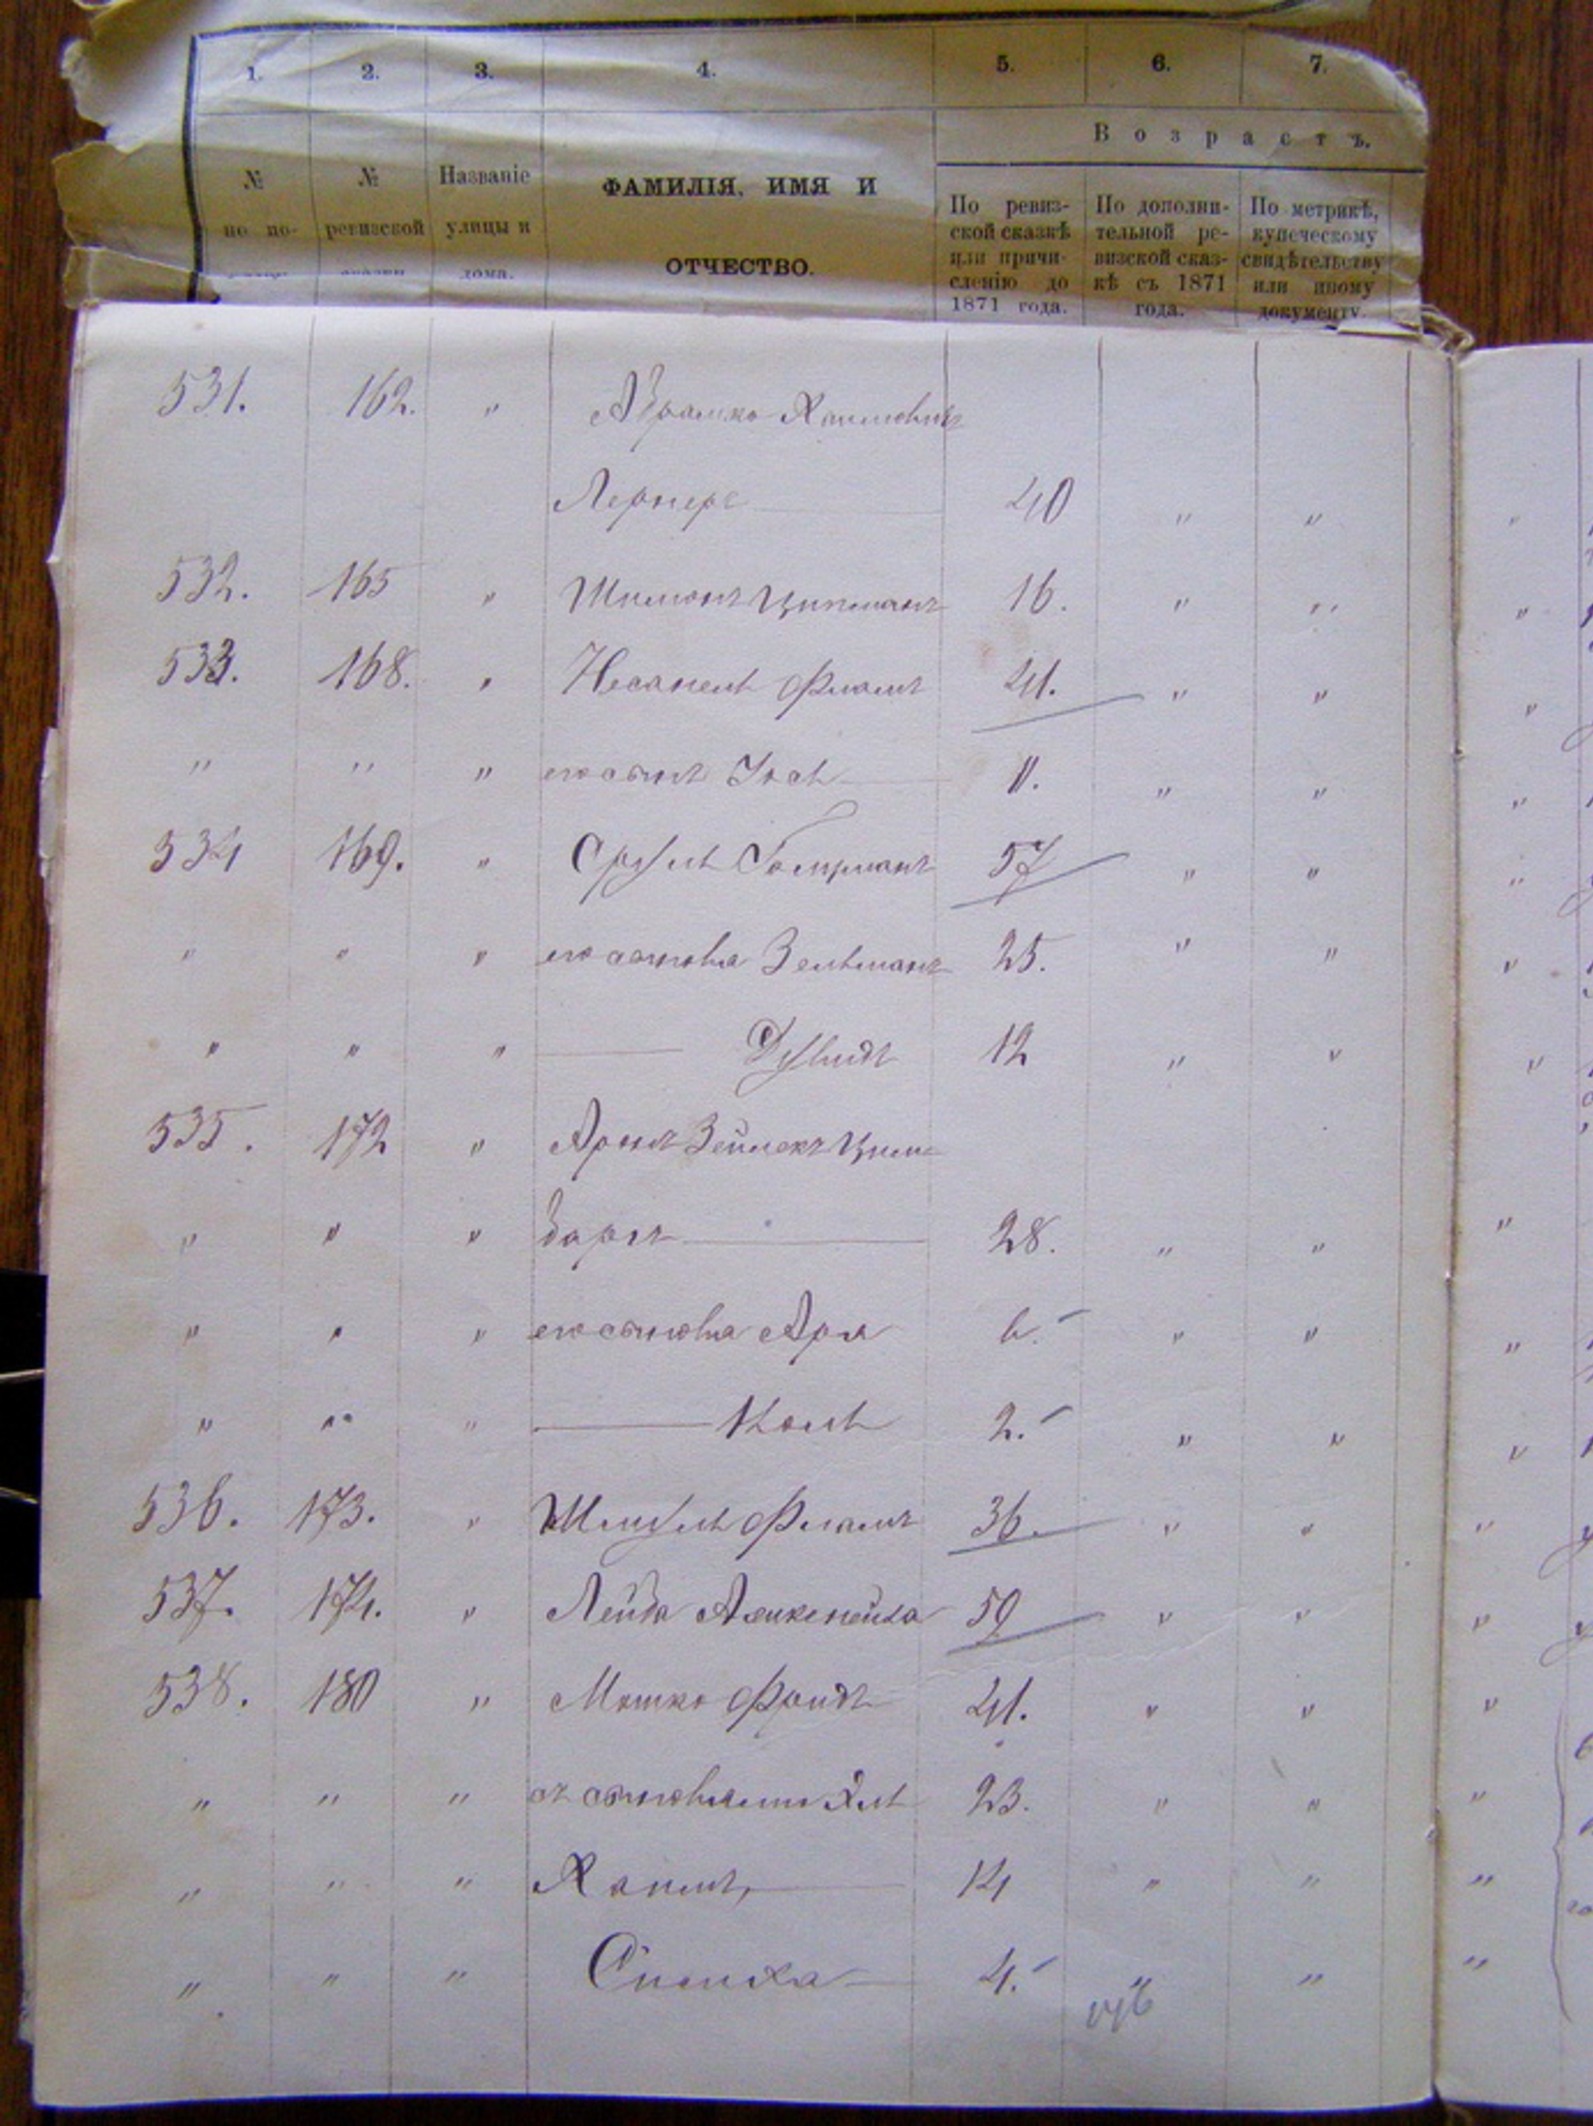 1. 2. 3. 4. 5. 6. 7.
Возрастъ.
№ по по-
№ ревизской сказки
Названіе улицы и дома.
ФАМИЛІЯ, ИМЯ И ОТЧЕСТВО.
По ревиз-
ской сказкѣ
или причи-
сленію до
1871 года.
По дополни-
тельной ре-
визской сказ-
кѣ съ 1871
года.
По метрикѣ,
купеческому
свидѣтельству
или иному
документу.
531. 162. " Абрамко Хаимовичъ
Лернеръ 40 " " "
532. 165 " Шимонъ Ципманъ 16. " " "
533. 168. " Несанель Фиалъ 41. " " "
" " " его сынъ Іось 11. " " "
534 169. " Сруль 57 " " "
" " " его сыновья Зельманъ 25. " " "
" " " — Дувидъ 12 " " "
535. 172 " Аронъ Зейлекъ Цим-
" " " баръ 28. " " "
" " " его сыновья Арія 6. " " "
" " " — 2. " " "
536. 173. " Шмуль Фиалъ 36. " " "
537. 174. " Лейба 59 " " "
538. 180 " Мошко Фридъ 41. " " "
" " " съ сыновьями 23. " " "
" " " Хаимъ, 14 " " "
" " " Симха 4. " " "